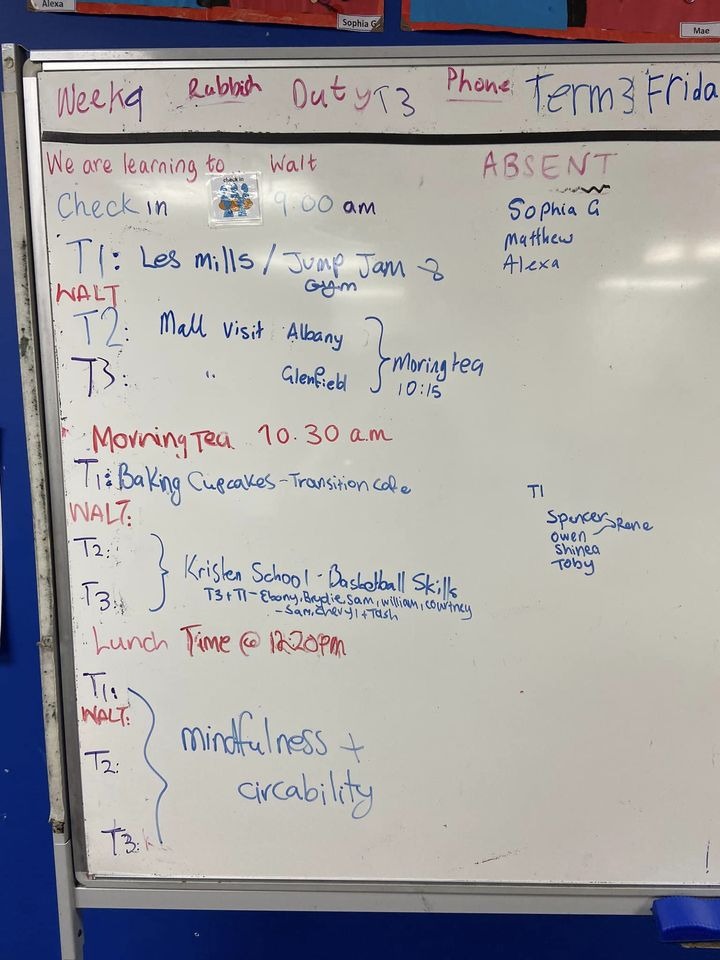 Alexa
Sophia G
Mae
Week 9 Rubbish Duty T3 Phone Term 3 Frida
We are learning to Walt
ABSENT
Check in check in 9:00 am
Sophia G
Matthew
Alexa
T1: Les mills / Jump Jam
Gym
WALT
T2: Mall Visit Albany
T3: " Glenfield
Moring tea
10:15
Morning Tea 10.30 a.m
T1: Baking Cupcakes - Transition cafe
WALT:
T1
Spencer Rene
owen
Shinea
Toby
T2:
T3:
Kristen School - Basketball Skills
T3 + T1 - Ebony, Brydie, Sam, william, courtney
- Sam, Cheryl + Tash
Lunch Time @ 12:20pm
T1:
WALT:
T2:
T3:
mindfulness +
circability